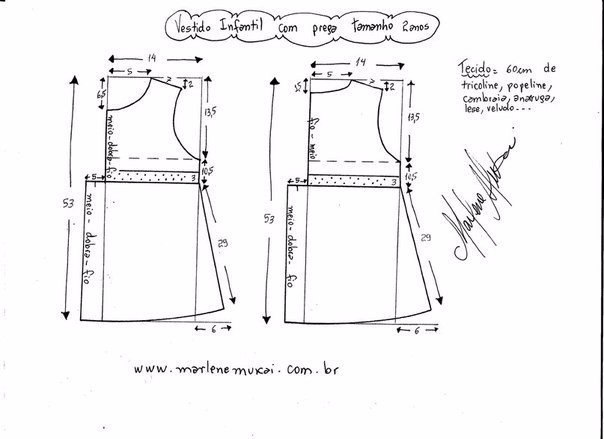 Vestido Infantil com prega tamanho 2anos
14
5
2
2
6,5
13,5
meio-dobra-fio
10,5
3
5
53
meio-dobra-fio
29
6
14
5
2
2
13,5
fio-meio
10,5
3
5
53
meio-dobra-fio
29
6
Tecido= 60cm de
tricoline, popeline,
cambraia, anarruga,
lese, veludo...
Marlene Mukai
www.marlenemukai.com.br